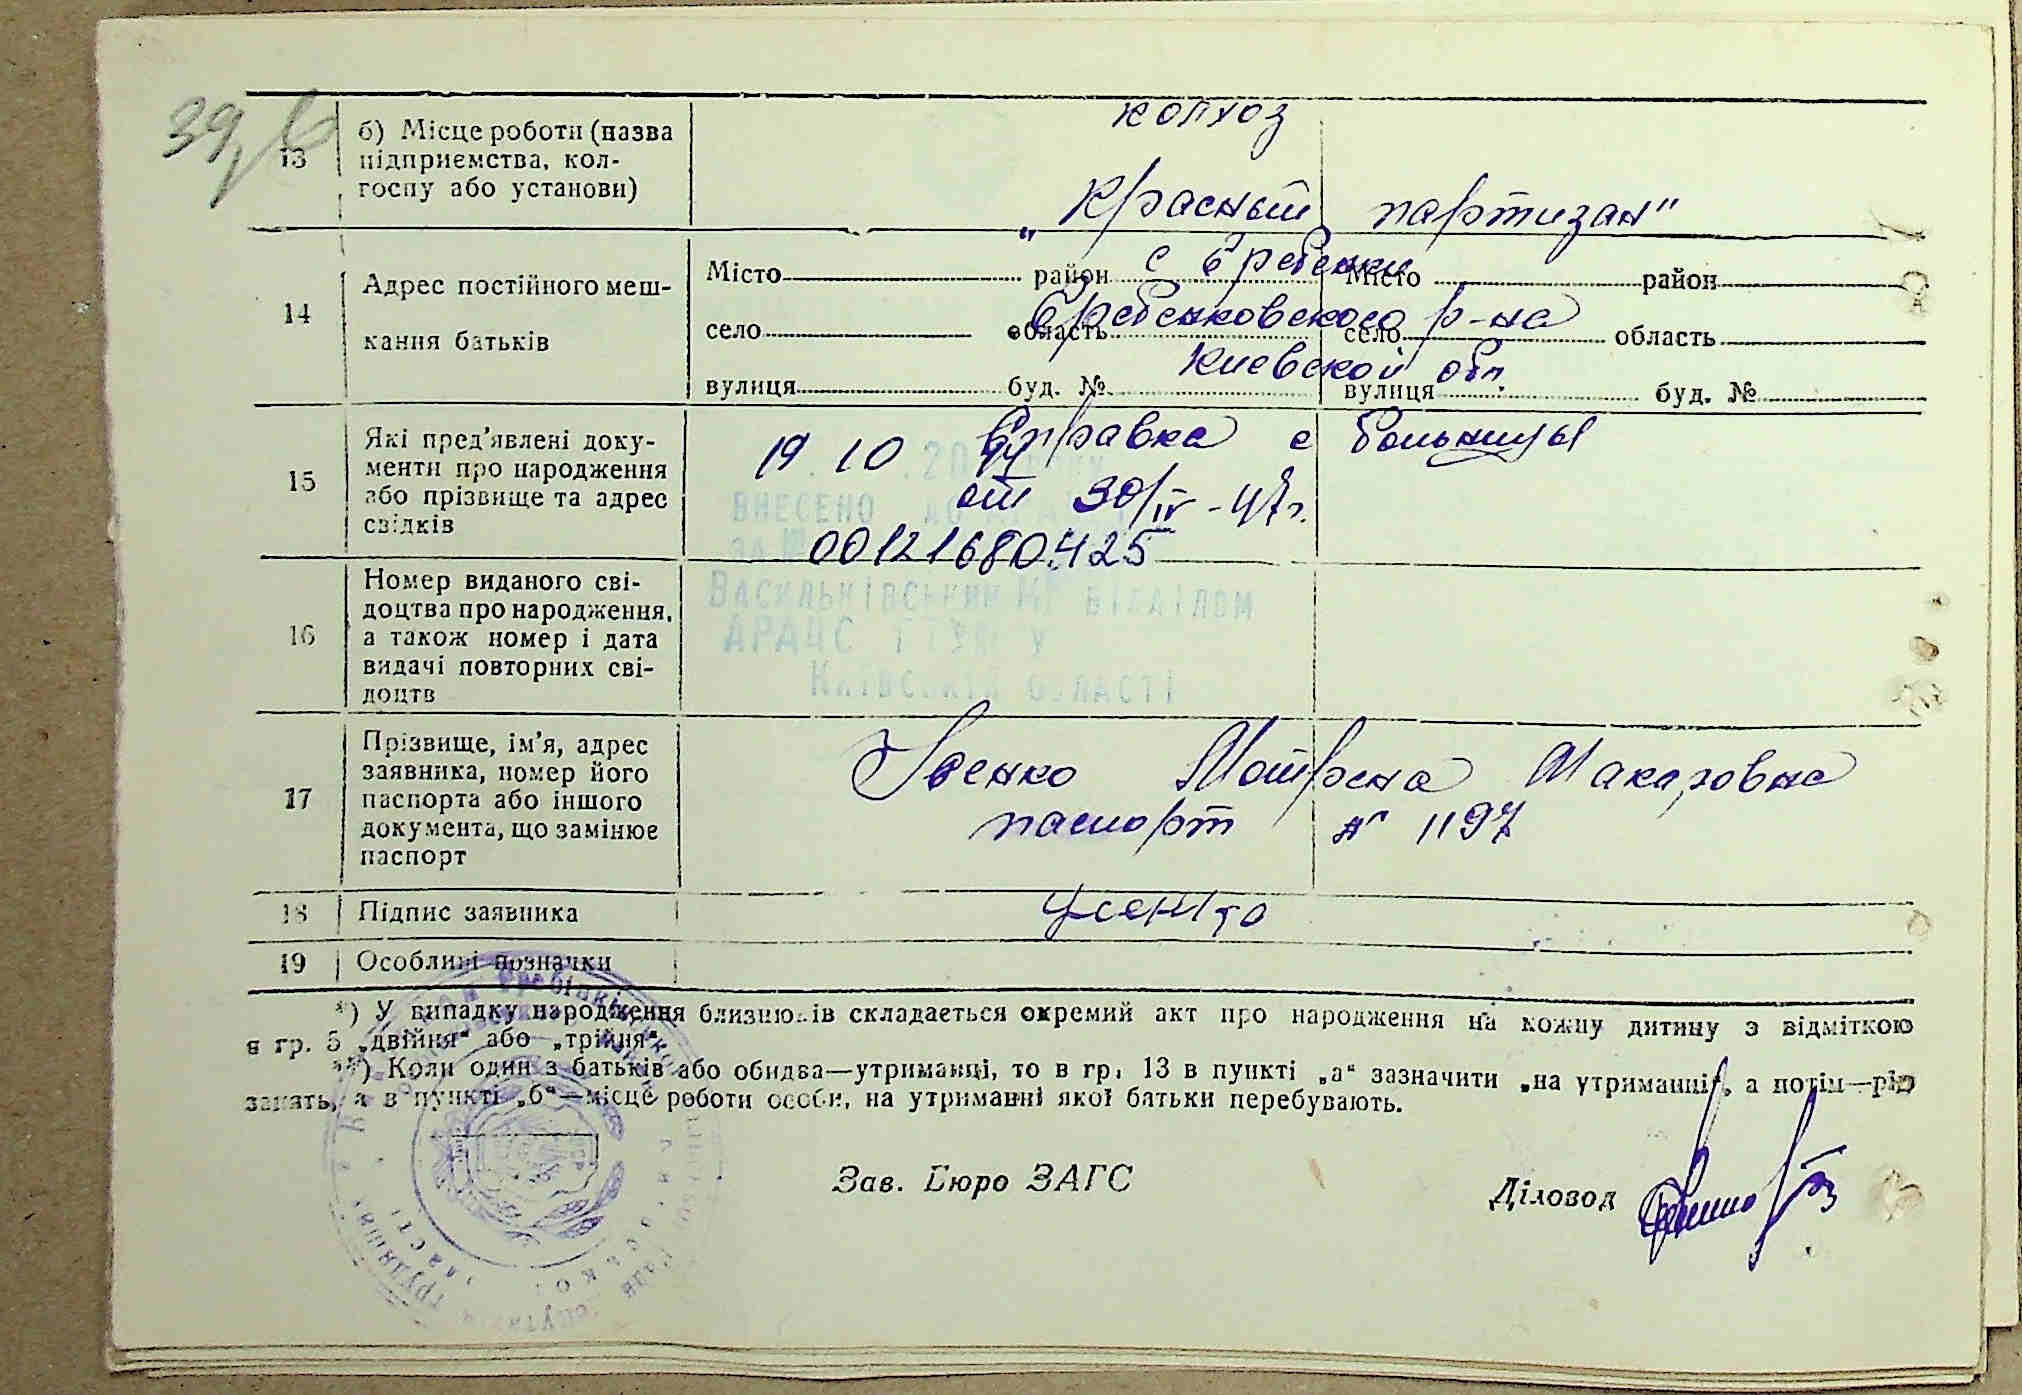 39,
колхоз
13
б) Місце роботи (назва
підприємства, кол-
госпу або установи)
„Красный партизан"
14
Адрес постійного меш-
кання батьків
Місто район Місто район
с Гребенки
село область село область
Гребенковского р-на
вулиця буд. № вулиця буд. №
Киевской обл.
15
Які пред'явлені доку-
менти про народження
або прізвище та адрес
свідків
Справка с больницы
19 10
от 30/IV-47г.
ВНЕСЕНО ДО
00121680425
16
Номер виданого сві-
доцтва про народження,
а також номер і дата
видачі повторних сві-
доцтв
Васильківським відділом
Київській області
17
Прізвище, ім'я, адрес
заявника, номер його
паспорта або іншого
документа, що замінює
паспорт
Мотрена Макаровна
паспорт № 1197
18
Підпис заявника
19
Особливі позначки
*) У випадку народження близнюків складається окремий акт про народження на кожну дитину з відміткою
в гр. 5 „двійня" або „трійня".
**) Коли один з батьків або обидва—утриманці, то в гр. 13 в пункті „а" зазначити „на утриманні", а потім—рід
занять, а в пункті „б"—місце роботи особи, на утриманні якої батьки перебувають.
Зав. Бюро ЗАГС
Діловод